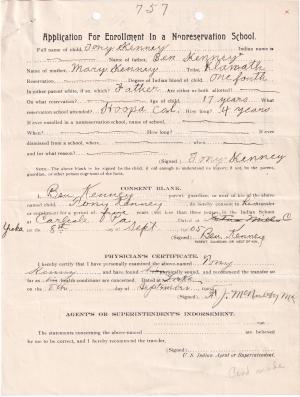 757
Application For Enrollment In a Nonreservation School.
Full name of child, Tony Kenney Indian name is
Name of father, Ben Kenney
Name of mother, Mary Kenney Tribe, Klamath
Reservation, Degree of Indian blood of child, One forth
Is either parent white, if so, which? Father Are either or both allotted?
On what reservation? Age of child, 17 years What
reservation school attended? Hoopa Cal. How long? 4 years
If ever enrolled in a nonreservation school, name of school,
When? How long? If ever
dismissed from school, where
and for what reason?
(Signed) Tony Kenney
NOTE.—The above to be signed by the child, if old enough to understand its import; if not, by the parent, guardian, or other person cognizant of the facts.
CONSENT BLANK.
I, Ben Kenney parent, guardian, or next of kin of the above-
named child, Tony Kenney do hereby consent to
for a period of five years (not less than three years), to the Indian School
at Carlisle Pa. Dated at
Yreka this 8th day of Sept 05
Ben Kenney
PARENT, GUARDIAN, OR NEXT OF KIN.
PHYSICIAN'S CERTIFICATE.
I hereby certify that I have personally examined the above-named Tony
Kenney and have found sound, and recommend the transfer so
far as health conditions are concerned. Dated at Yreka
the 8th day of September
(Signed)
AGENT'S OR SUPERINTENDENT'S INDORSEMENT.
The statements concerning the above-named are believed
by me to be correct, and I hereby recommend the transfer.
(Signed)
U. S. Indian Agent or Superintendent.
Card made